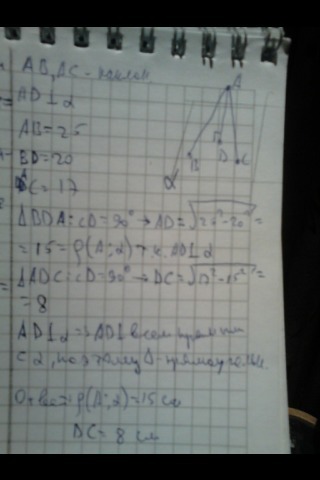 AB, AC - наклон.
AD ⊥ α
AB = 25
BD = 20
AC = 17
ΔBDA: ∠D = 90° → AD = √25² - 20² =
= 15 = ρ(A; α) т.к. AD ⊥ α
ΔADC: ∠D = 90° → DC = √17² - 15² =
= 8
AD ⊥ α → AD ⊥ всем прямым
с α, поэтому Δ - прямоугольн.
Ответ: ρ(A; α) = 15 см
DC = 8 см
A
B
D
C
α